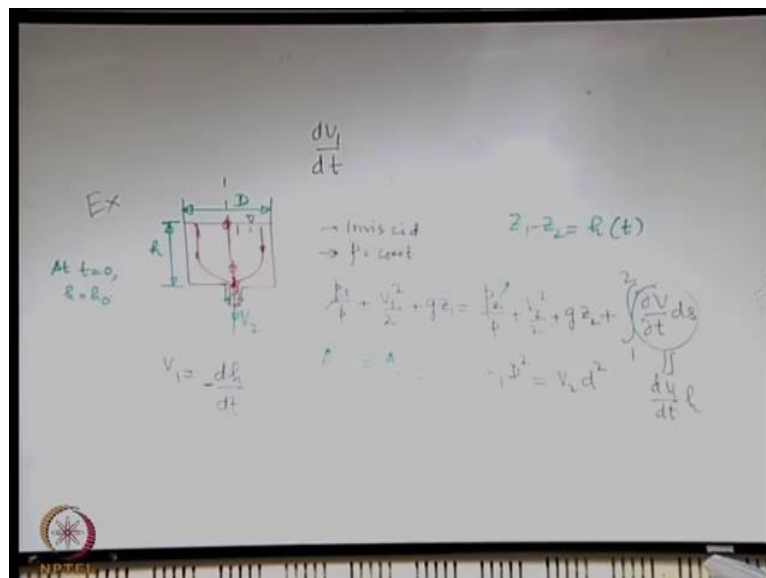 dV₁
dt
Ex
D
h
At t=0,
h=h₀
V₂
→ inviscid
→ ρ= const
z₁-z₂ = h(t)
p₁/ρ + V₁²/2 + gz₁ = p₂/ρ + V₂²/2 + gz₂ + ∫₁² ∂V/∂t ds
V₁ = -dh/dt
D² = V₂ d²
dV₁/dt h
NPTEL